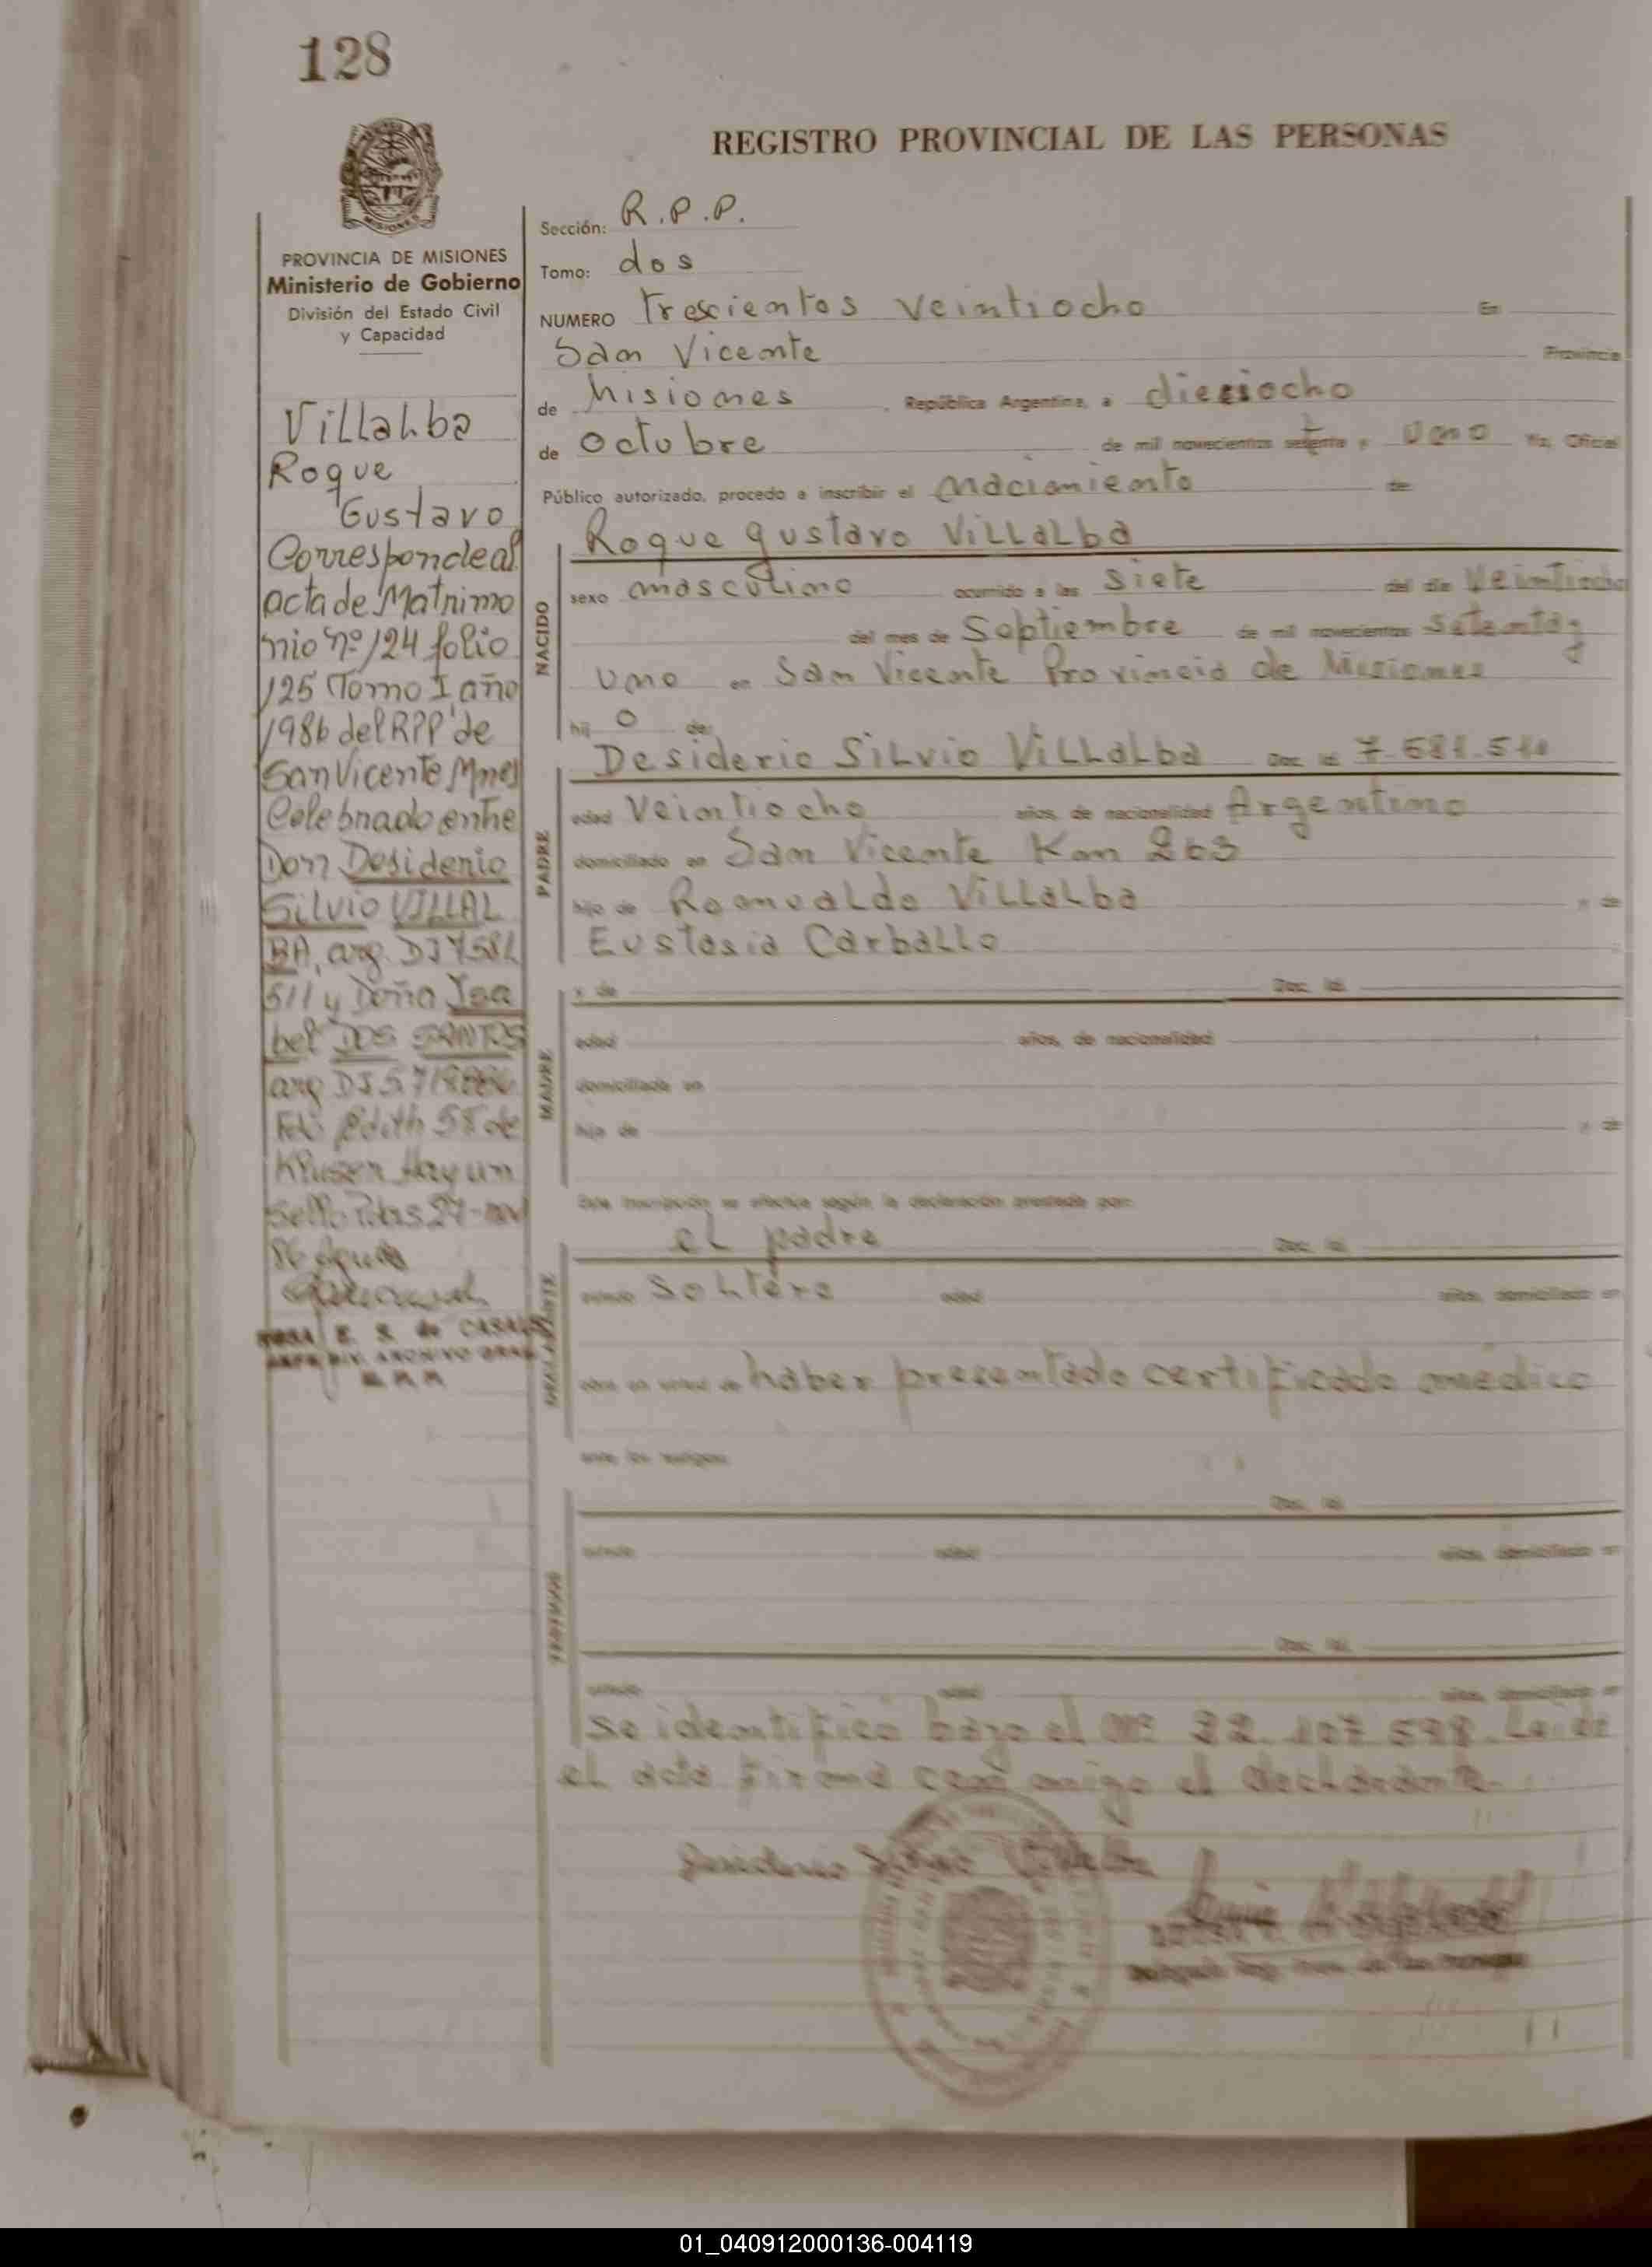 128
REGISTRO PROVINCIAL DE LAS PERSONAS
MISIONES
PROVINCIA DE MISIONES
Ministerio de Gobierno
División del Estado Civil
y Capacidad
Villalba
Roque
Gustavo
Corresponde al
acta de Matrimo
nio nº 124 folio
125 Tomo I año
1986 del RPP de
San Vicente Mnes
Celebrado entre
Don Desiderio
Silvio VILLAL
BA, arg. DI 7581
511 y Doña Isa
bel DOS SANTOS
arg DI
Edith de
sello 27-nov
86
E. S. de CASALS
Sección: R.P.P.
Tomo: dos
NUMERO trescientos veintiocho En
San Vicente Provincia
de Misiones , República Argentina, a dieciocho
de Octubre de mil novecientos setenta y uno Yo, Oficial
Público autorizado, procedo a inscribir el nacimiento de
NACIDO
Roque gustavo Villalba
sexo masculino ocurrido a las siete del día Veintiocho
del mes de Septiembre de mil novecientos setenta y
uno en San Vicente Provincia de Misiones
hij o de:
PADRE
Desiderio Silvio Villalba Doc. Id.
edad Veintiocho años, de nacionalidad Argentino
domiciliado en San Vicente Km 263
hijo de Romualdo Villalba y de
Eustasia Carballo
MADRE
y de Doc. Id.
edad años, de nacionalidad
domiciliada en
hija de y de
Esta inscripción se efectúa según la declaración prestada por:
DECLARANTE
el padre Doc. Id.
estado Soltero edad años, domiciliado en
haber presentado certificado médico
ante los testigos:
TESTIGOS
Doc. Id.
estado edad años, domiciliado en
Doc. Id.
estado edad años, domiciliado en
se identificó bajo el Nº 22.107.598. Leída
el acta firma conmigo el declarante.
01_040912000136-004119